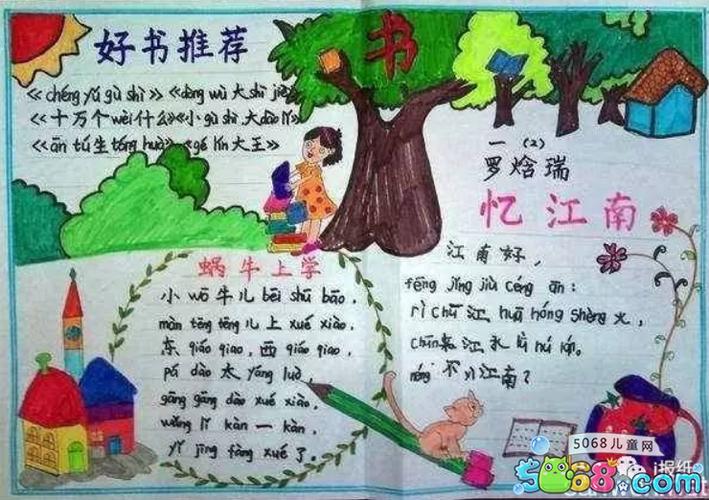 好书推荐
书
《chéng yǔ gù shì》《dòng wù 大 shì jiè》
《十万个 wèi 什么》《小 gù shi 大 dào lǐ》
《ān tú 生 tóng huà》《gé lín 大王》
一 (2)
罗焓瑞
忆江南
江南好,
fēng jǐng jiù céng ān:
rì chū 江 huā hóng shèng 火,
chūn 来江水 lǜ rú lán.
néng 不 yì 江南?
蜗牛上学
小 wō 牛儿 bēi shū bāo,
màn tēng tēng 儿上 xué xiào,
东 qiáo qiao, 西 qiáo qiao,
pá dào 太 yáng luò,
gāng gāng dào xué xiào,
wǎng lǐ kàn 一 kàn,
yǐ jīng fàng xué 了.
5068儿童网
5068.com
i报纸